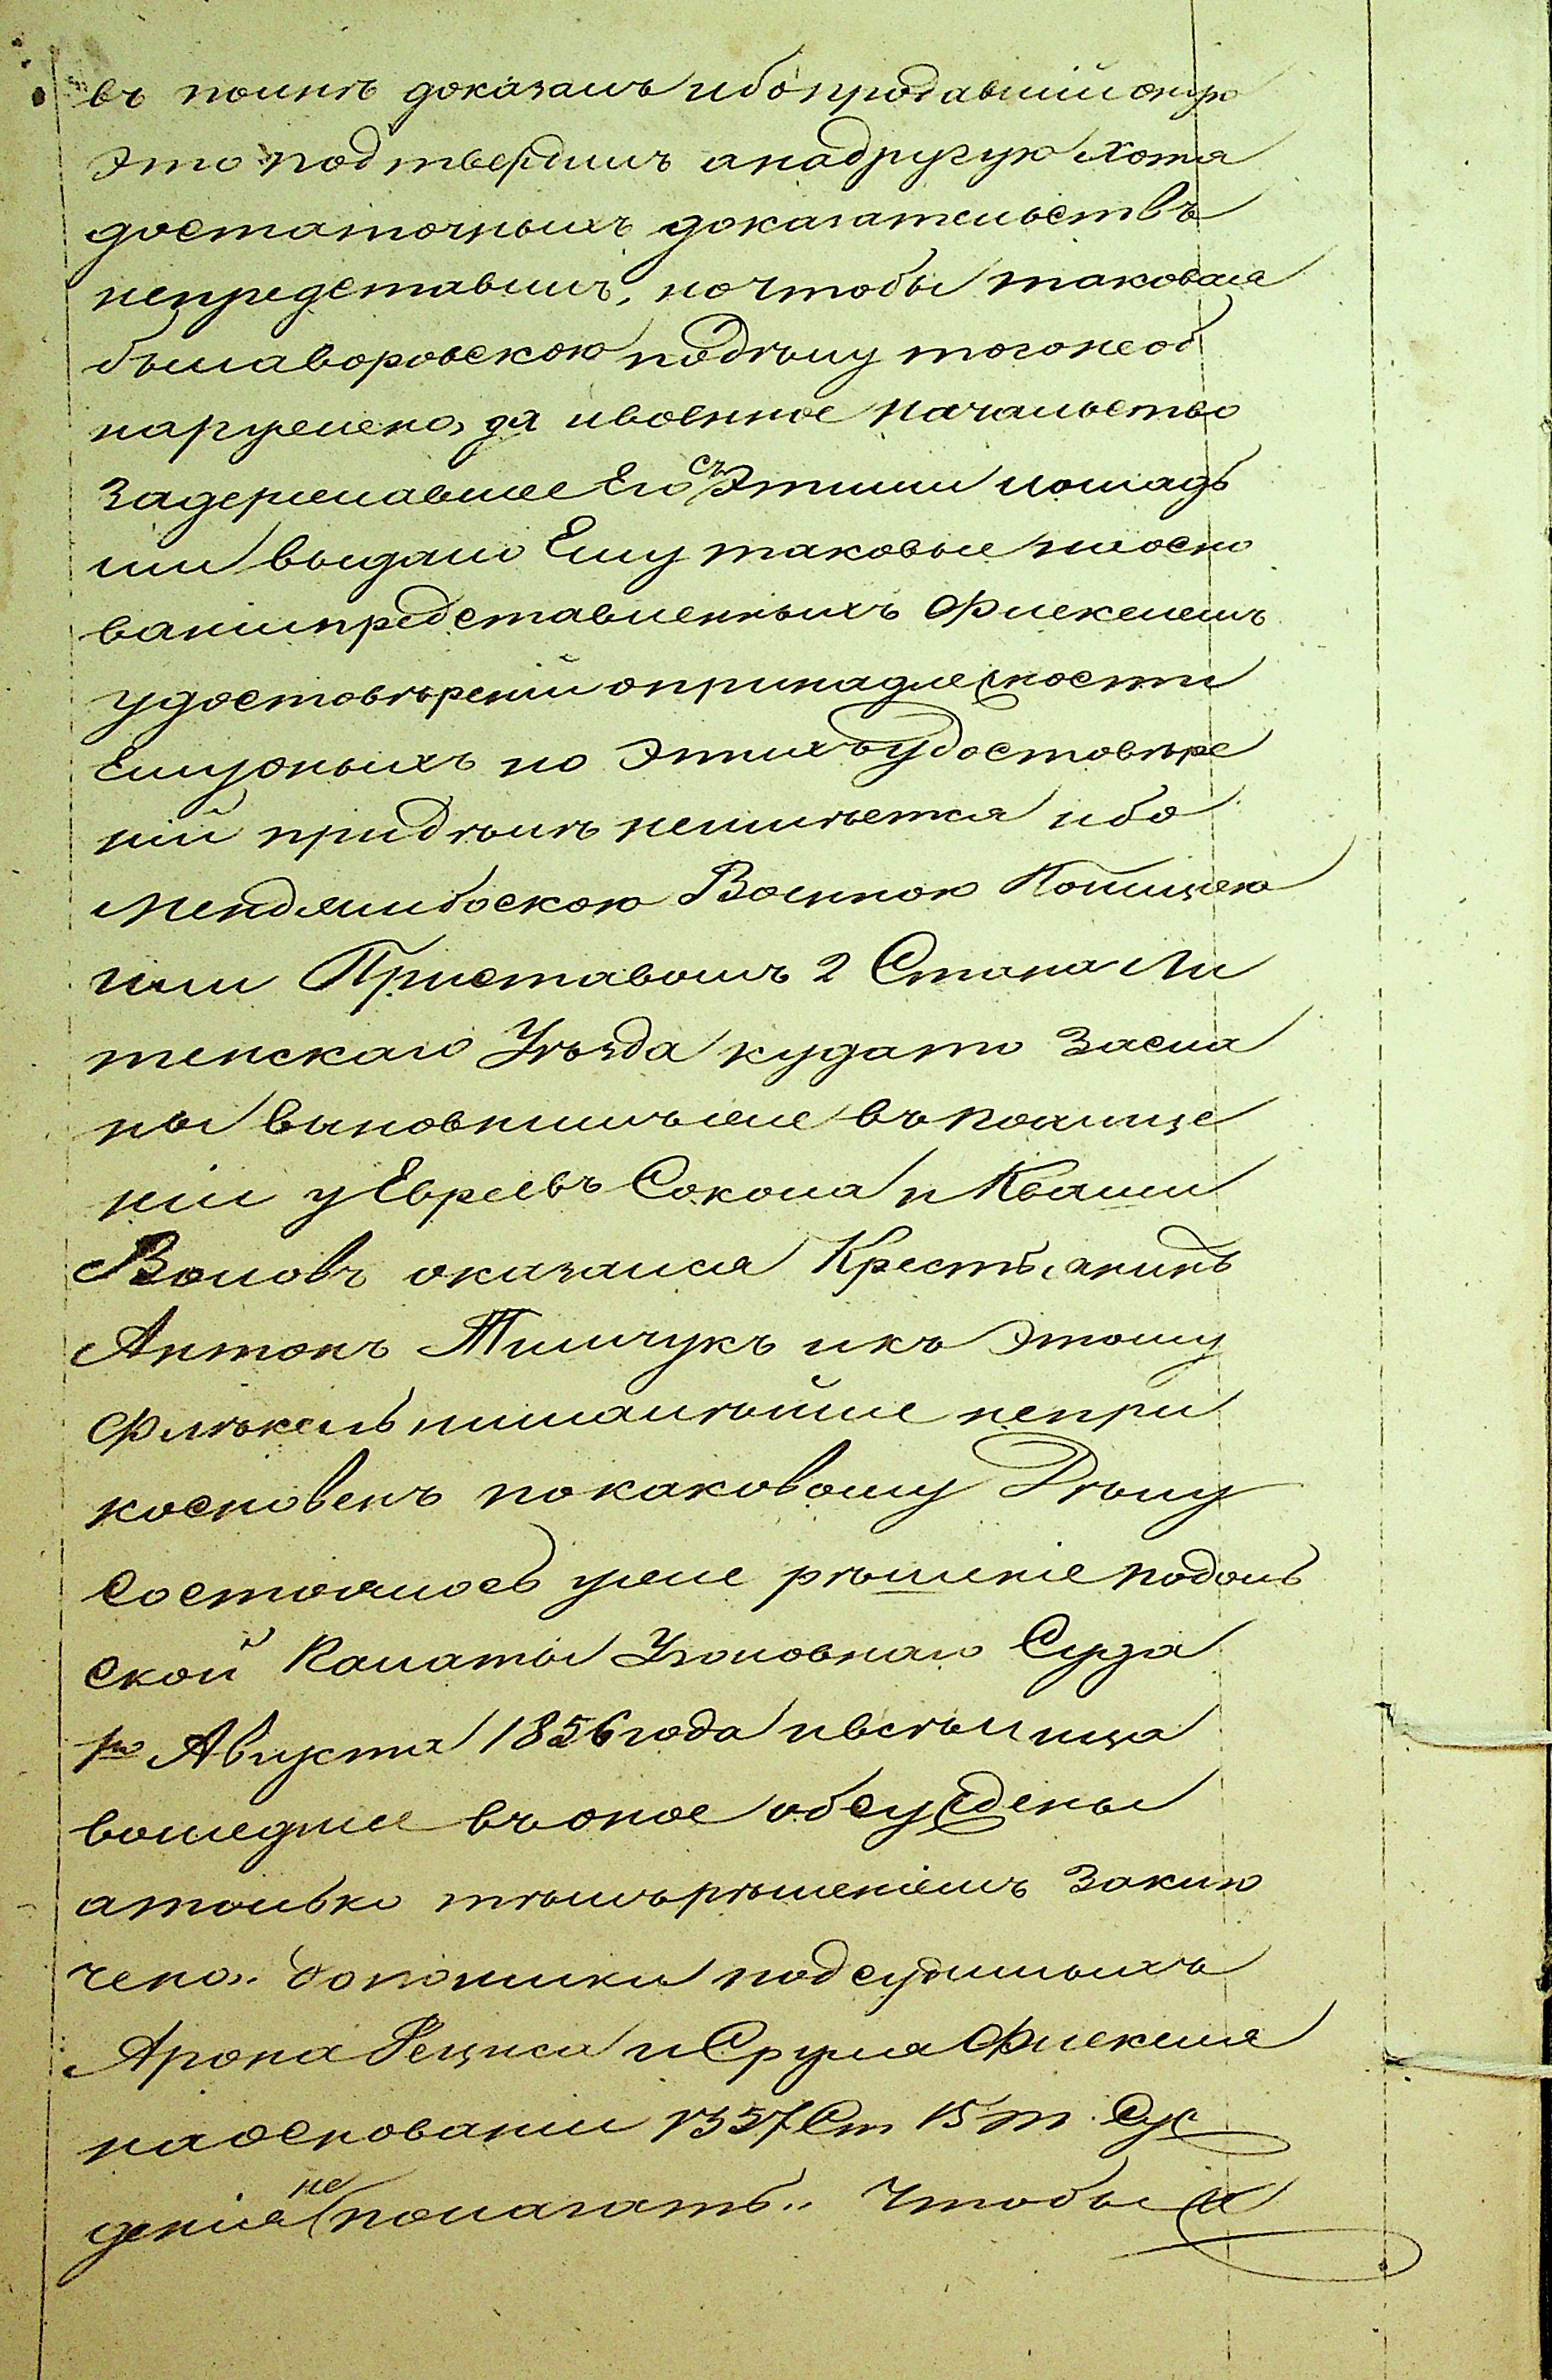 въ полнѣ доказалъ ибо продавшій оную
это подтвердилъ а на другую хотя
достаточныхъ доказательствъ
непредставилъ, но чтобы таковая
была воровскою по дѣлу того необ
наружено, да и военное начальство
задержавшее Его съ этими лошадь
ми выдало Ему таковые на осно
ваніи представленныхъ Флекелемъ
удостовѣреній о принадлежности
Ему оныхъ но этихъ удостовѣре
ній при дѣлѣ неимѣется ибо
Меджибожскою Военною Полицею
или Приставомъ 2 Стана Ли
тинскаго Уѣзда куда то засла
ны виновнымъ же въ похище
ніи у Евреевъ Сокола и Квати
Воловъ оказался Крестьянинъ
Антонъ Тимчукъ и къ этому
Флѣкель ни малѣйше непри
косновенъ по каковому Дѣлу
состоялось уже рѣшеніе Подоль
ской Палаты Уголовнаго Суда
1го Августа 1856 года и всѣ лица
вошедшіе въ оное обсуждены
а только тѣмъ рѣшеніемъ заклю
чено. До поимки подсудимыхъ
Арона Рециса и Сруля Флекеля
на основаніи 1337 Ст 15 т. Суж
денія не полагать.. Чтобы и